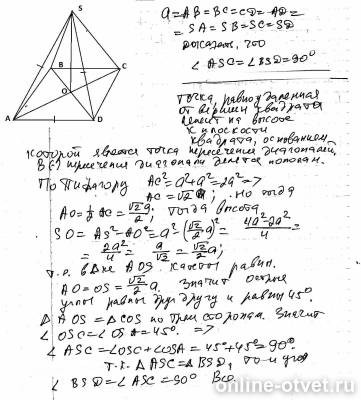 S
B
C
O
A
D
a = AB = BC = CD = AD =
= SA = SB = SC = SD
Докажем, что
∠ ASC = ∠ BSD = 90°
Точка, равноудаленная
от вершин квадрата
лежит на высоте
к плоскости
квадрата, основанием
которой является точка пересечения диагоналей.
В (·) пересечения диагонали делятся пополам.
По Пифагору AC² = a² + a² = 2a² =>
AC = √2 a; Но тогда
AO = ½ AC = √2/2 a; Тогда высота
SO = AS² - AO² = a² - (√2/2 a)² = 4a² - 2a²/4 =
= 2a²/4 = a/√2 = √2/2 a;
Т.о. в Δке AOS катеты равны.
AO = OS = √2/2 a. Значит острые
углы равны друг другу и равны 45°.
Δ AOS = Δ COS по трем сторонам. Значит
∠ OSC = ∠ OSA = 45°. =>
∠ ASC = ∠OSC + ∠OSA = 45° + 45° = 90°.
Т.к. Δ ASC = Δ BSD, то и угол
∠ BSD = ∠ ASC = 90°
online-otvet.ru